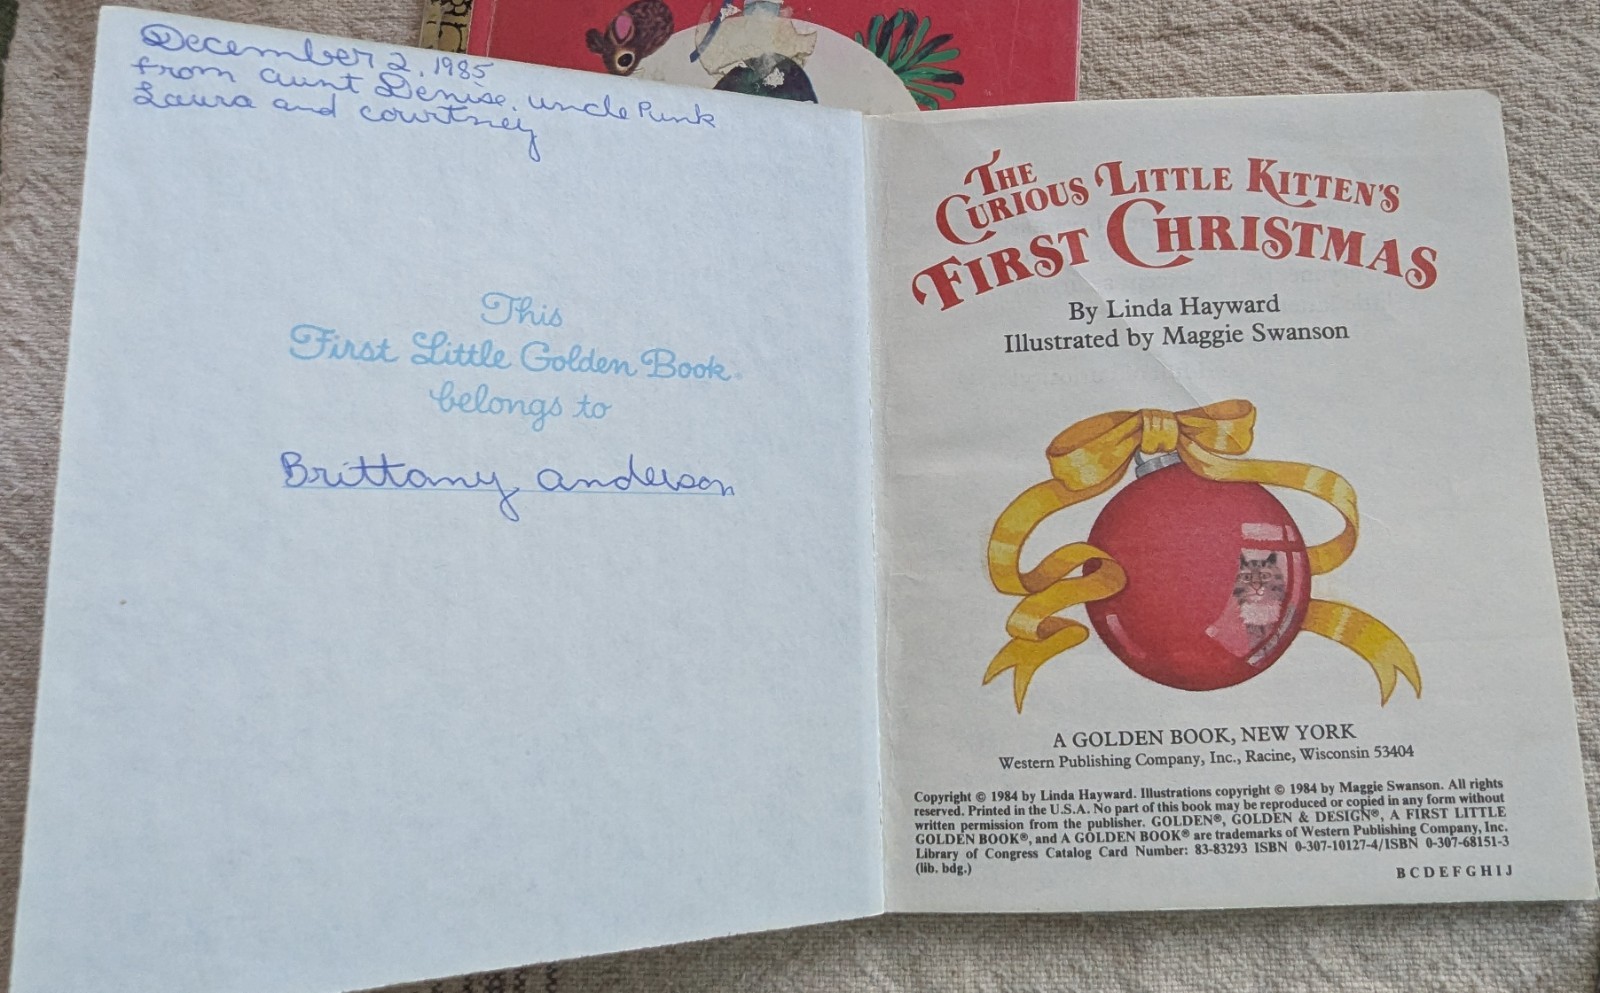 December 2, 1985
from aunt Denise, uncle Punk
Laura and courtney
This
First Little Golden Book
belongs to
Brittany anderson
THE
CURIOUS LITTLE KITTEN'S
FIRST CHRISTMAS
By Linda Hayward
Illustrated by Maggie Swanson
A GOLDEN BOOK, NEW YORK
Western Publishing Company, Inc., Racine, Wisconsin 53404
Copyright © 1984 by Linda Hayward. Illustrations copyright © 1984 by Maggie Swanson. All rights
reserved. Printed in the U.S.A. No part of this book may be reproduced or copied in any form without
written permission from the publisher. GOLDEN®, GOLDEN & DESIGN®, A FIRST LITTLE
GOLDEN BOOK®, and A GOLDEN BOOK® are trademarks of Western Publishing Company, Inc.
Library of Congress Catalog Card Number: 83-83293 ISBN 0-307-10127-4/ISBN 0-307-68151-3
(lib. bdg.)
B C D E F G H I J